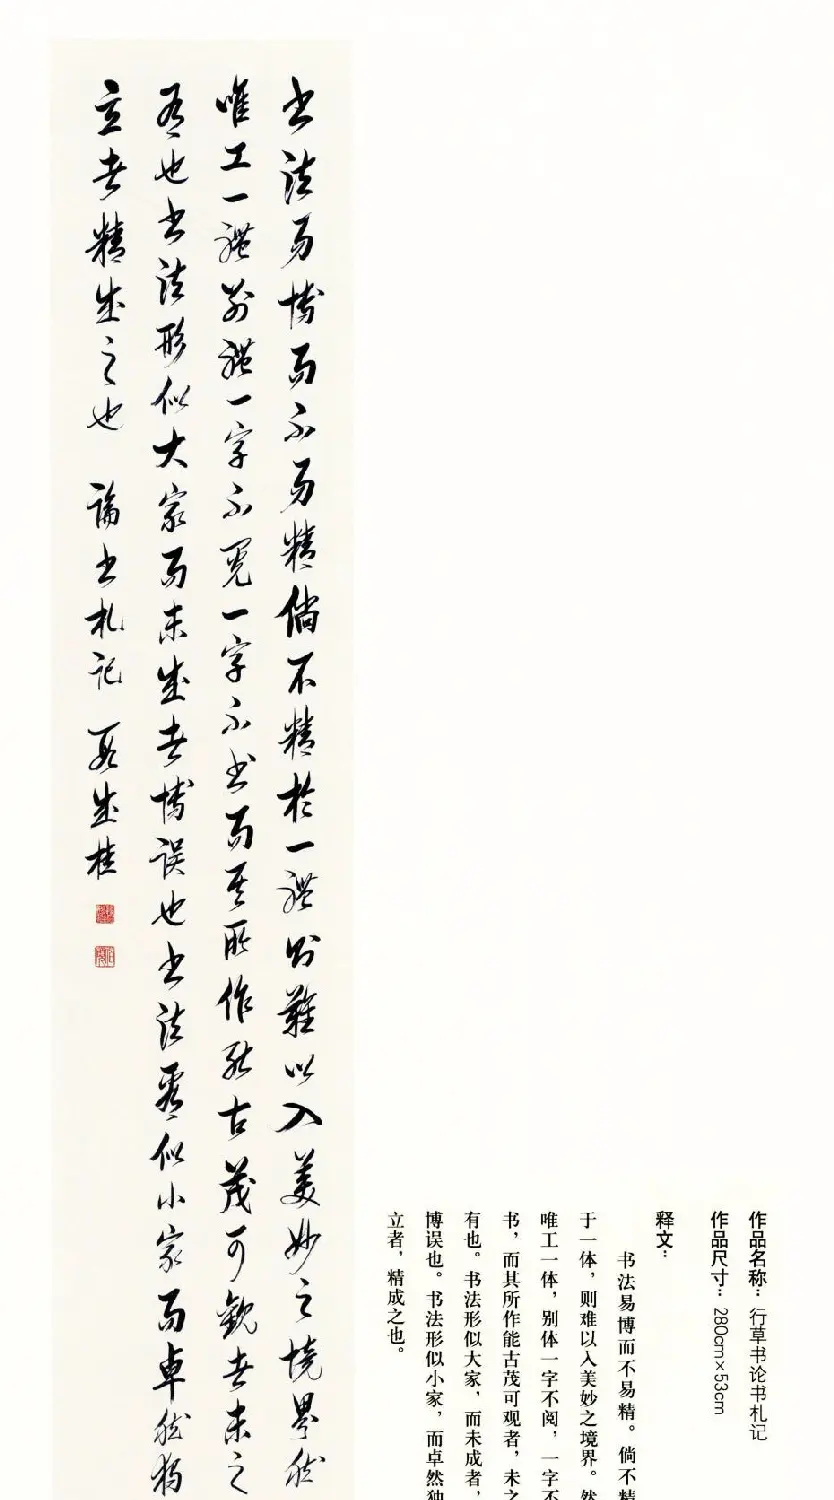 书法易博而不易精倘不精於一體则難以入美妙之境界然
唯工一體别體一字不阅一字不书而其所作能古茂可觀者未之
有也书法形似大家而未成者博误也书法看似小家而卓然独
立者精成之也 論书札记 夏成桂
作品名称：行草书论书札记
作品尺寸：280cm×53cm
释文：
书法易博而不易精。倘不精
于一体，则难以入美妙之境界。然
唯工一体，别体一字不阅，一字不
书，而其所作能古茂可观者，未之
有也。书法形似大家，而未成者，
博误也。书法形似小家，而卓然独
立者，精成之也。